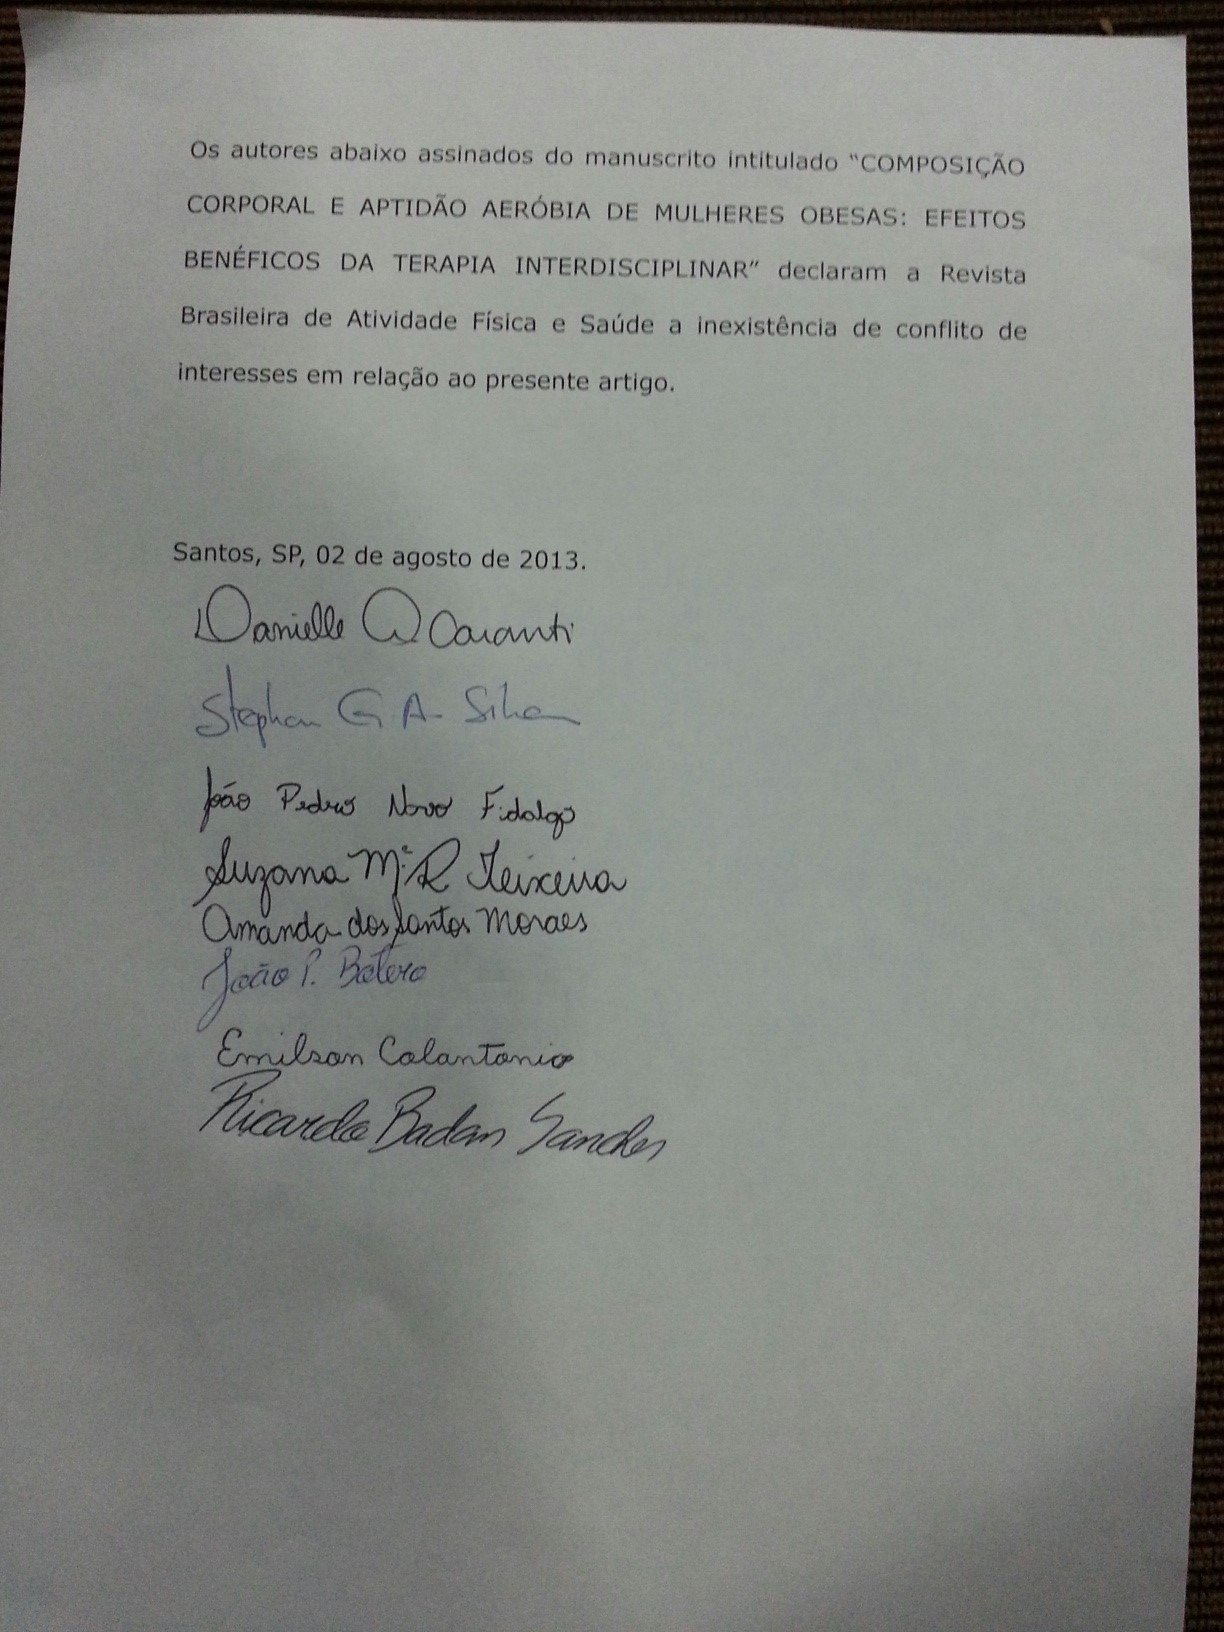 Os autores abaixo assinados do manuscrito intitulado “COMPOSIÇÃO
CORPORAL E APTIDÃO AERÓBIA DE MULHERES OBESAS: EFEITOS
BENÉFICOS DA TERAPIA INTERDISCIPLINAR” declaram a Revista
Brasileira de Atividade Física e Saúde a inexistência de conflito de
interesses em relação ao presente artigo.
Santos, SP, 02 de agosto de 2013.
Danielle Caranti
Stephan G A Silva
João Pedro Novo Fidalgo
Suzana Mª R Teixeira
Amanda dos Santos Moraes
João P. Botero
Emilson Colantonio
Ricardo Badan Sanches